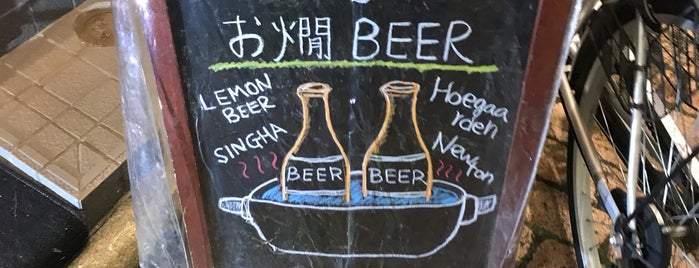 お燗 BEER
LEMON
BEER
SINGHA
BEER
BEER
Hoegaa
rden
Newton